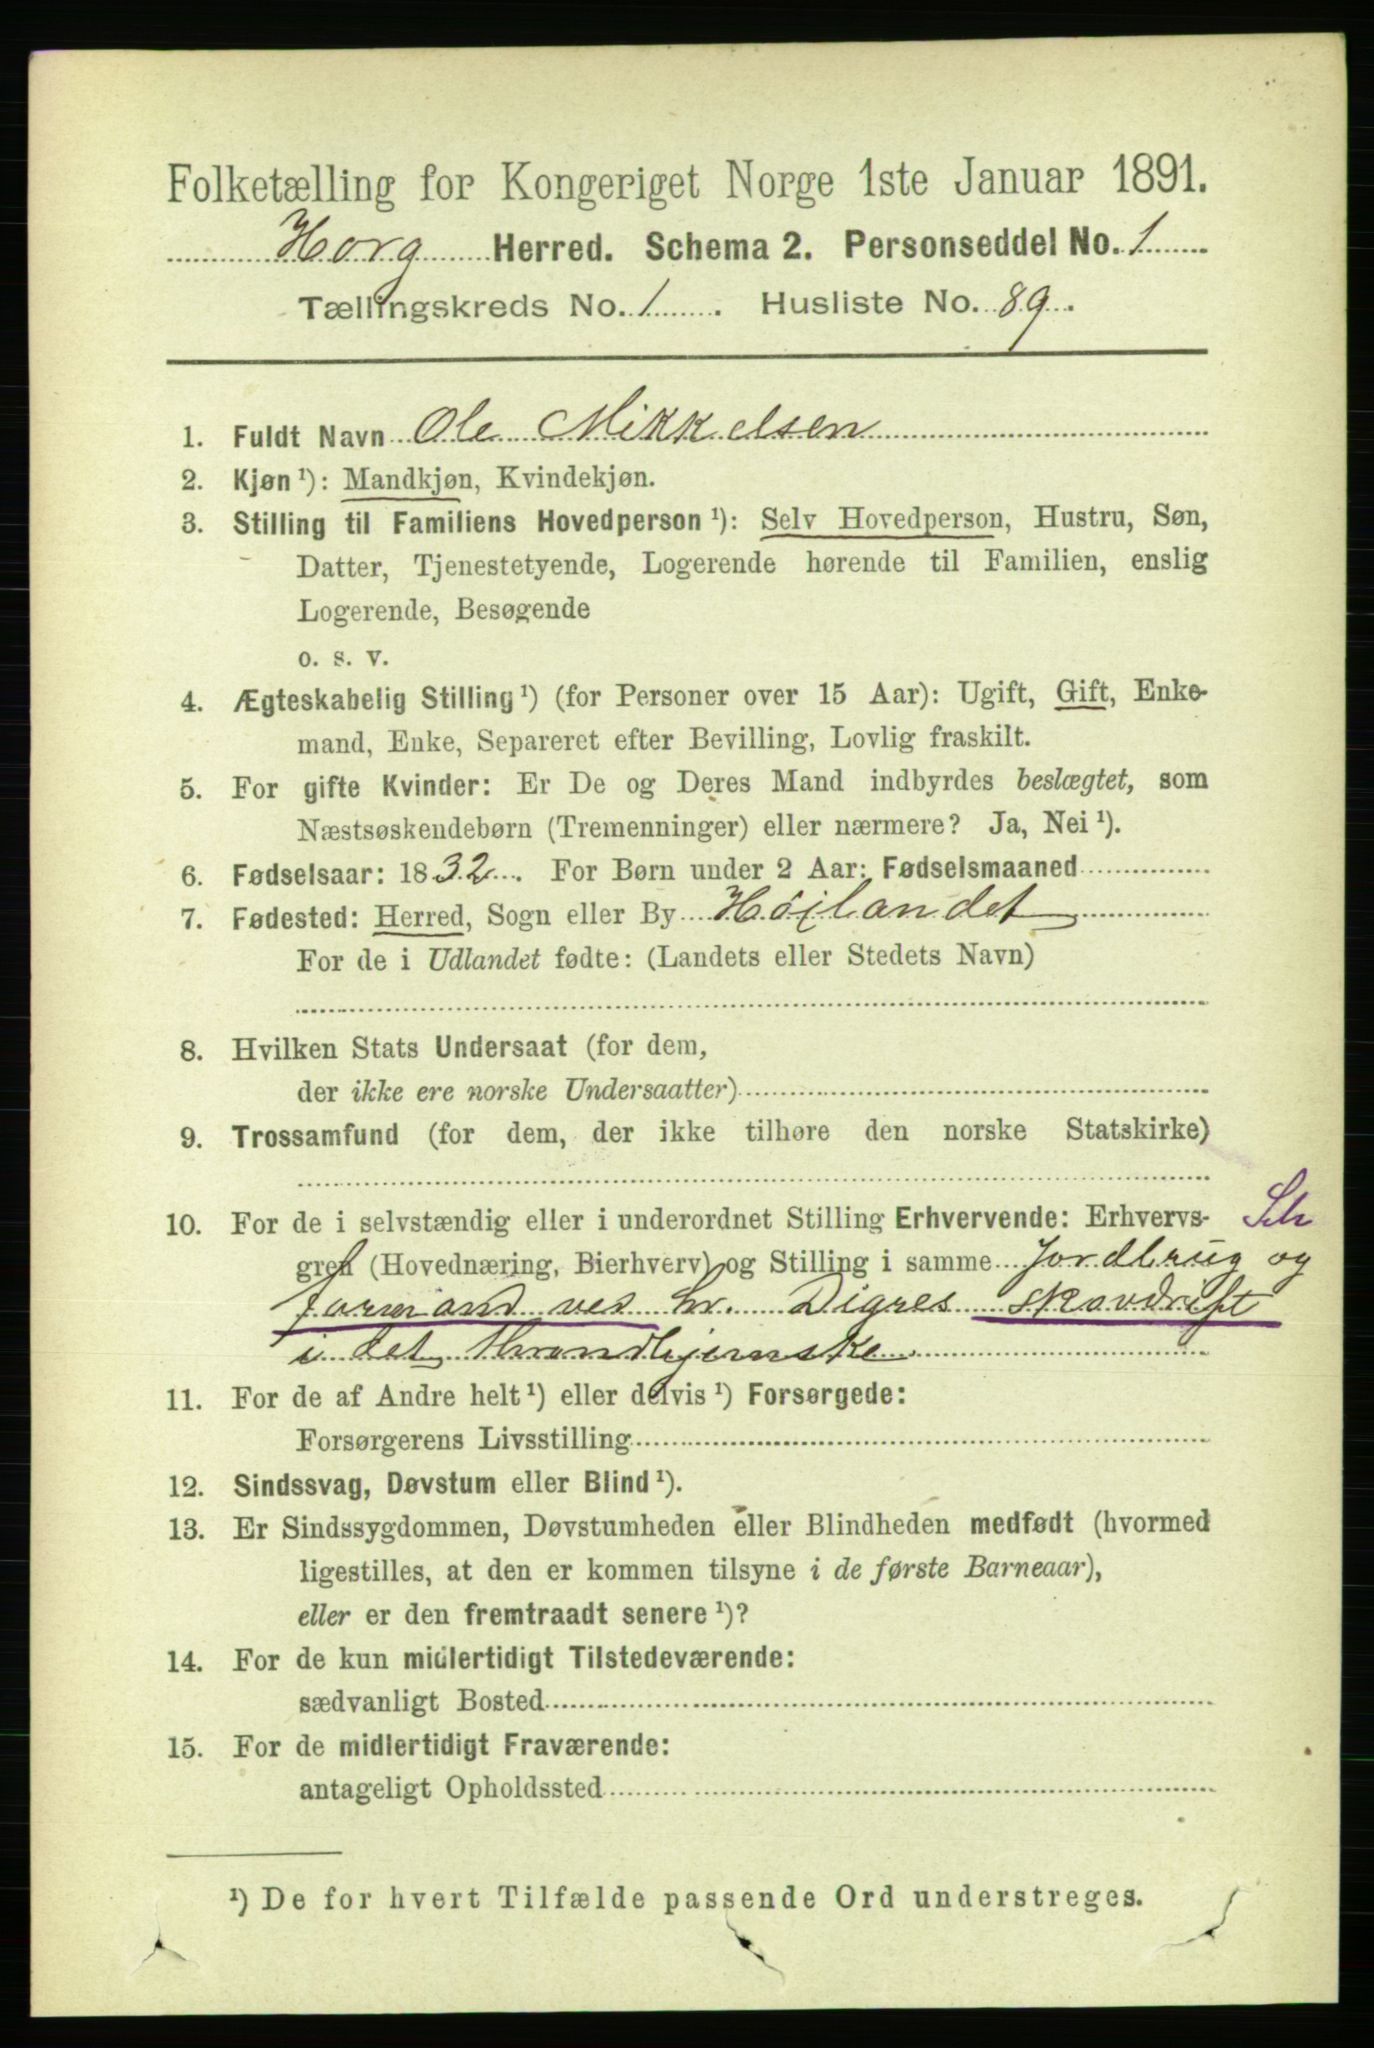 Folketælling for Kongeriget Norge 1ste Januar 1891.
Horg Herred. Schema 2. Personseddel No. 1
Tællingskreds No. 1. Husliste No. 89.
1. Fuldt Navn Ole Mikkelsen
2. Kjøn ¹): Mandkjøn, Kvindekjøn.
3. Stilling til Familiens Hovedperson ¹): Selv Hovedperson, Hustru, Søn,
Datter, Tjenestetyende, Logerende hørende til Familien, enslig
Logerende, Besøgende
o. s. v.
4. Ægteskabelig Stilling ¹) (for Personer over 15 Aar): Ugift, Gift, Enke-
mand, Enke, Separeret efter Bevilling, Lovlig fraskilt.
5. For gifte Kvinder: Er De og Deres Mand indbyrdes beslægtet, som
Næstsøskendebørn (Tremenninger) eller nærmere? Ja, Nei ¹).
6. Fødselsaar: 1832. For Børn under 2 Aar: Fødselsmaaned
7. Fødested: Herred, Sogn eller By Höilandet
For de i Udlandet fødte: (Landets eller Stedets Navn)
8. Hvilken Stats Undersaat (for dem,
der ikke ere norske Undersaatter)
9. Trossamfund (for dem, der ikke tilhøre den norske Statskirke)
10. For de i selvstændig eller i underordnet Stilling Erhvervende: Erhvervs-
gren (Hovednæring, Bierhverv) og Stilling i samme Jordbrug og
formand ved hr. Digres skovdrift
i det throndhjemske
11. For de af Andre helt ¹) eller delvis ¹) Forsørgede:
Forsørgerens Livsstilling
12. Sindssvag, Døvstum eller Blind ¹).
13. Er Sindssygdommen, Døvstumheden eller Blindheden medfødt (hvormed
ligestilles, at den er kommen tilsyne i de første Barneaar),
eller er den fremtraadt senere ¹)?
14. For de kun midlertidigt Tilstedeværende:
sædvanligt Bosted
15. For de midlertidigt Fraværende:
antageligt Opholdssted
¹) De for hvert Tilfælde passende Ord understreges.